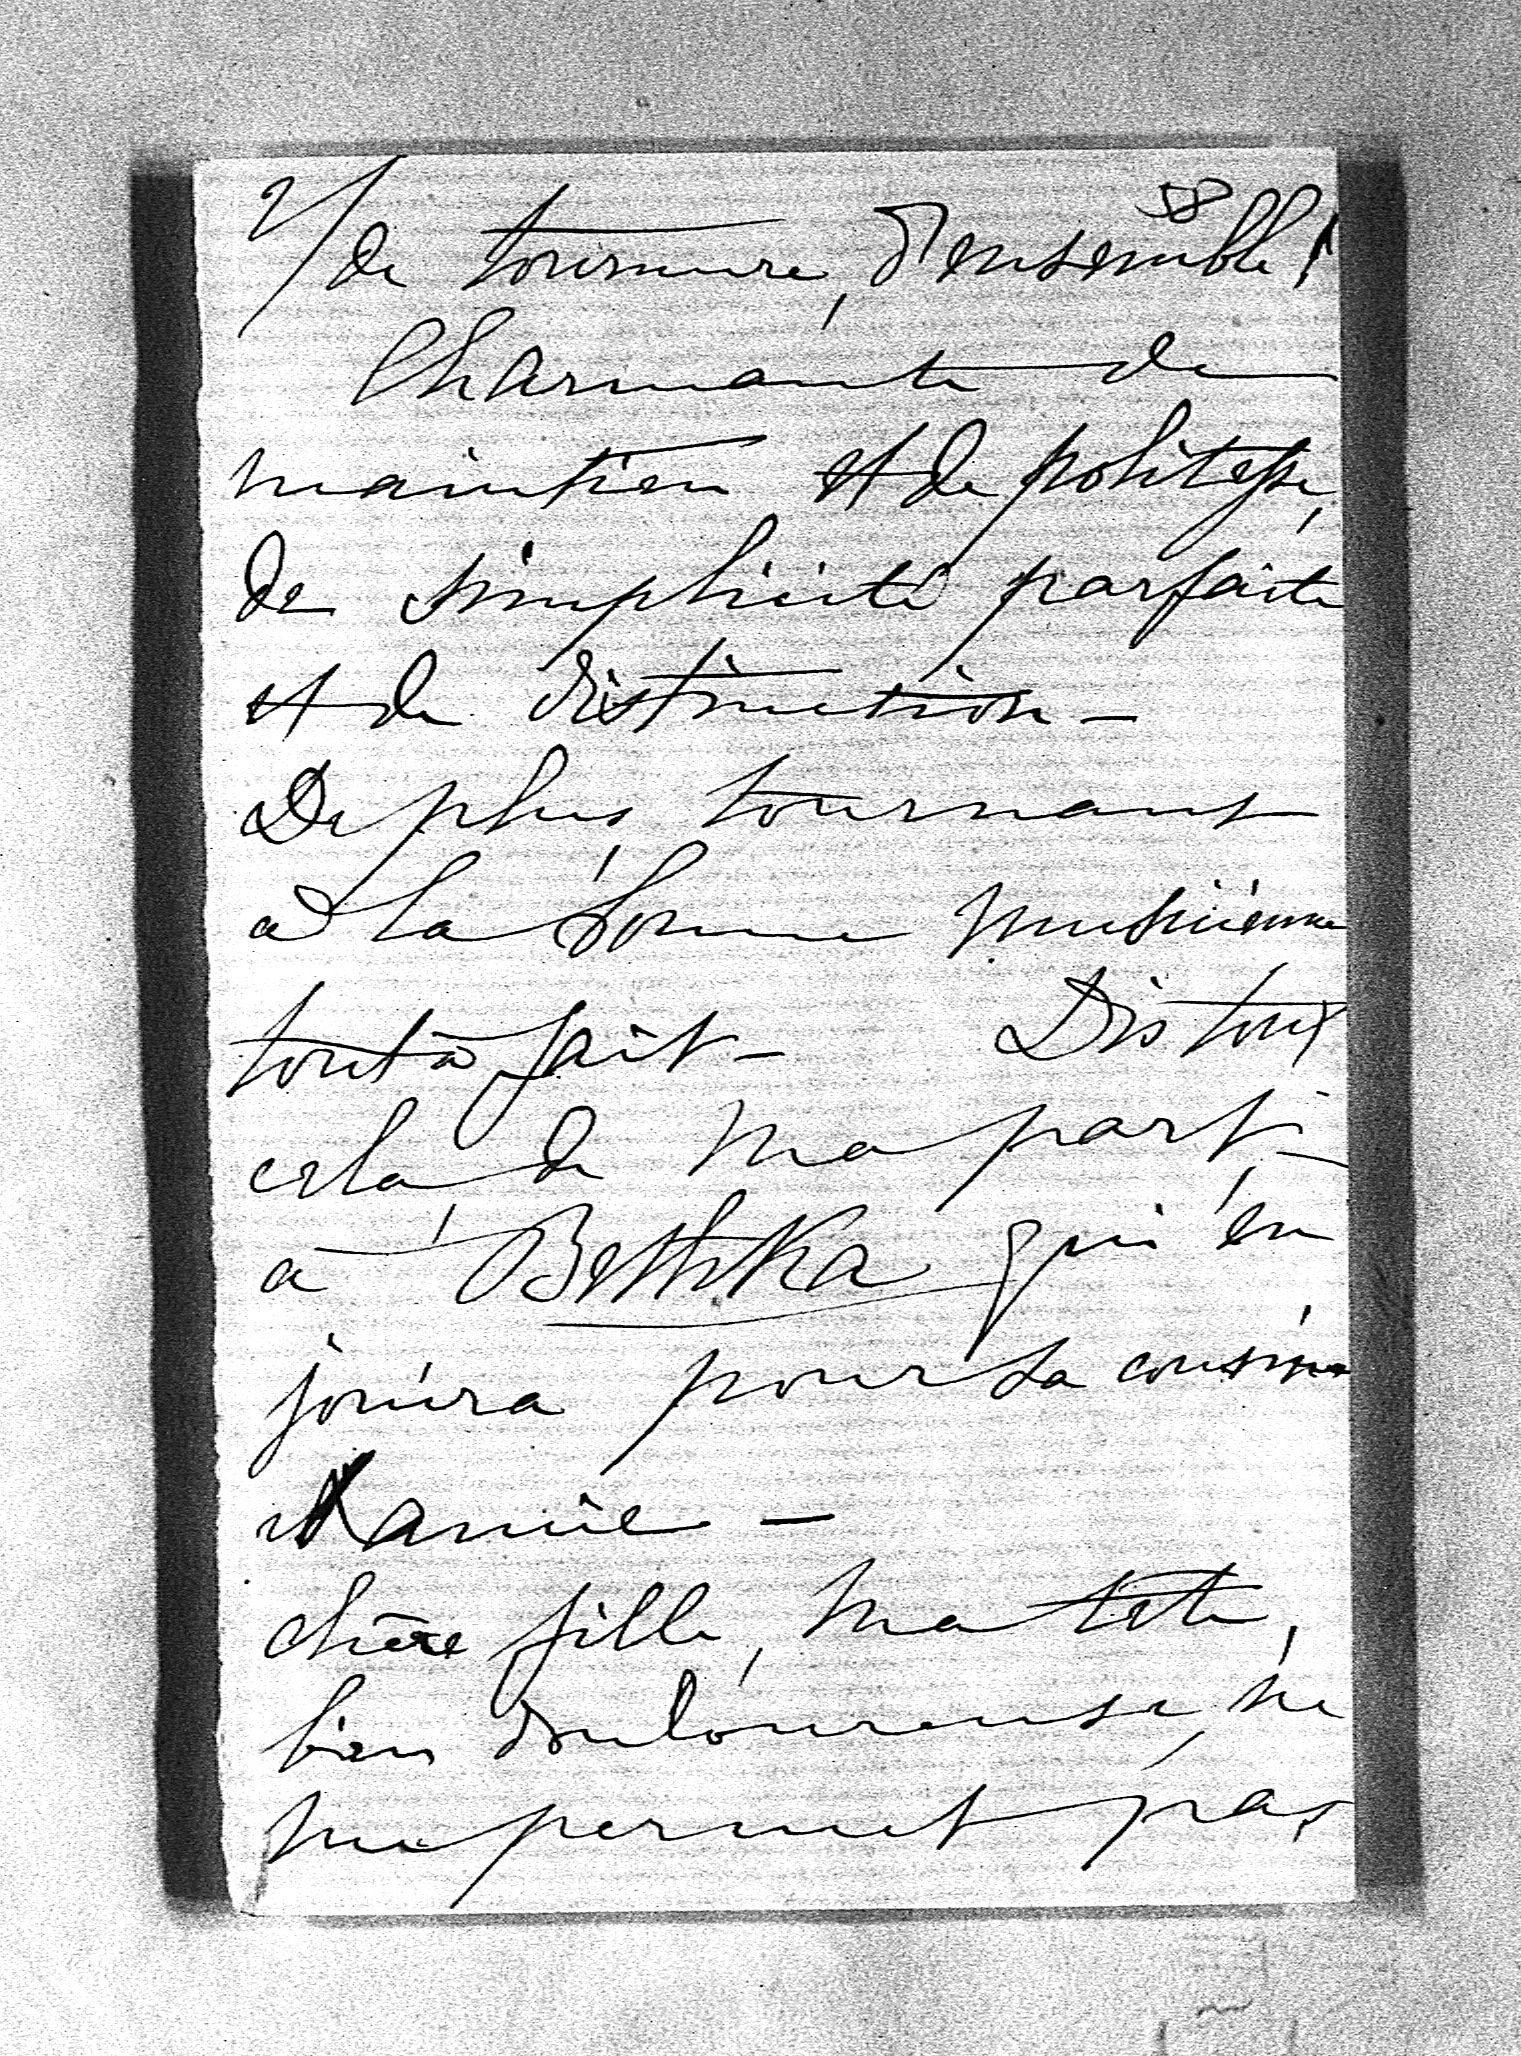 2/ 58
de tournure, d'ensemble!
Charmante de
maintien et de politesse,
de simplicité parfaite
et de distinction -
De plus, tournant
à la bonne musicienne
tout à fait - Dis tout
cela de ma part, -
à Bethka qui en
jouira pour sa cousine
et amie -
chère fille, ma tête,
bien douloureuse, ne
me permet pas